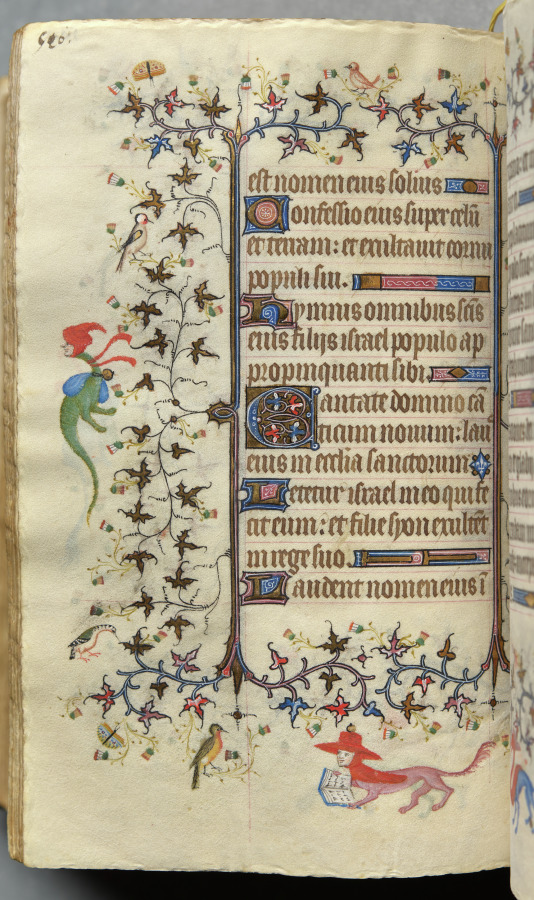 526
est nomen eius solius
Confessio eius super celū
et terram: et exultauit cornu
populi sui.
Hymnus omnibus scīs
eius filijs israel populo ap
propinquanti sibi
Cantate domino cā
ticum nouum: lau
eius in ecclīa sanctorum
Letetur israel in eo qui fe
cit eum: et filie syon exultēt
in rege suo
Laudent nomen eius ī